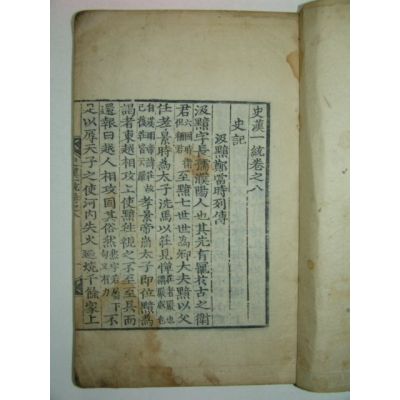 史漢一統卷之八
史記
汲黯鄭當時列傳
汲黯字長孺濮陽人也其先有寵於古之衛
君六國時衛但稱君至黯七世世爲卿大夫黯以父
任孝景時爲太子洗馬以莊見憚
孝景帝崩太子即位黯爲
謁者東越相攻上使黯往視之不至至吳而
還報曰越人相攻固其俗然不
足以辱天子之使河內失火延燒千餘家上